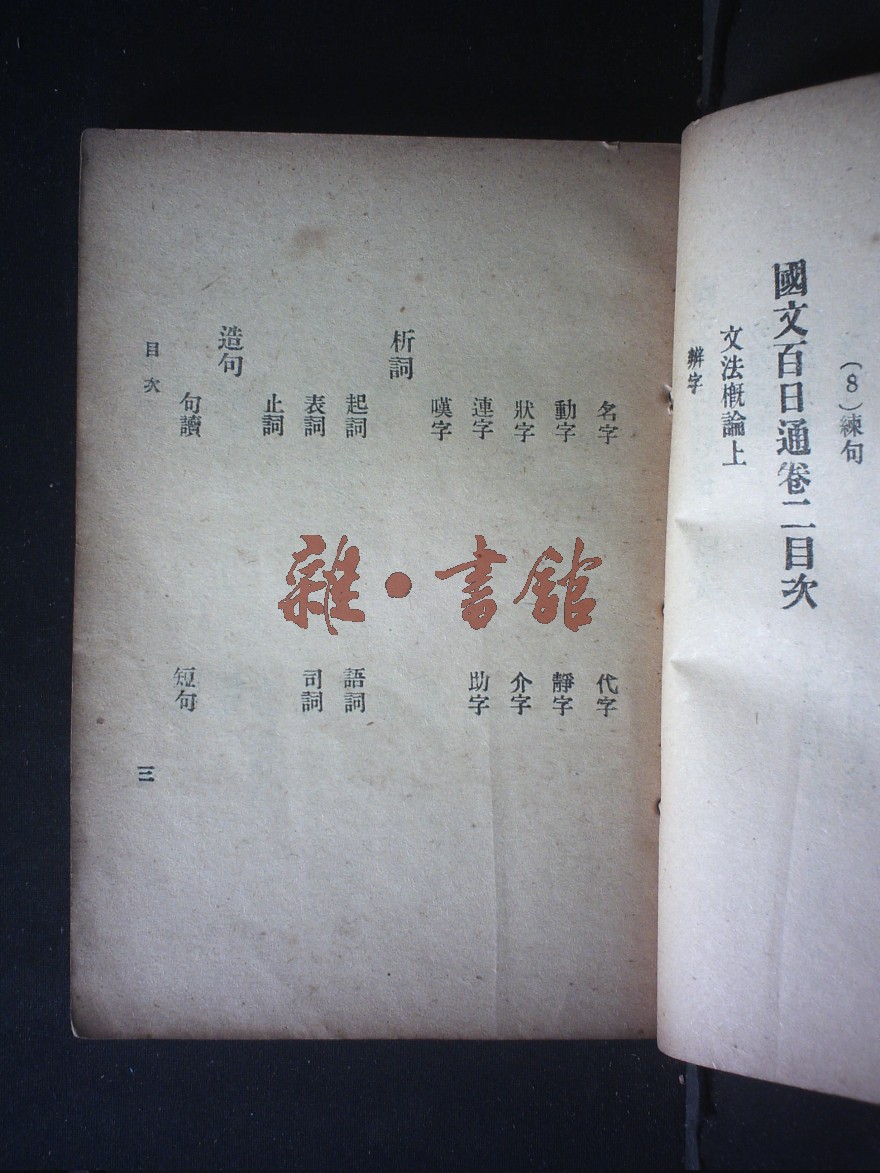 (8)練句
國文百日通卷二目次
文法概論上
辨字
名字 代字
動字 靜字
狀字 介字
連字 助字
嘆字
析詞
起詞 語詞
表詞 司詞
止詞
造句
句讀 短句
目次 三
雜·書館